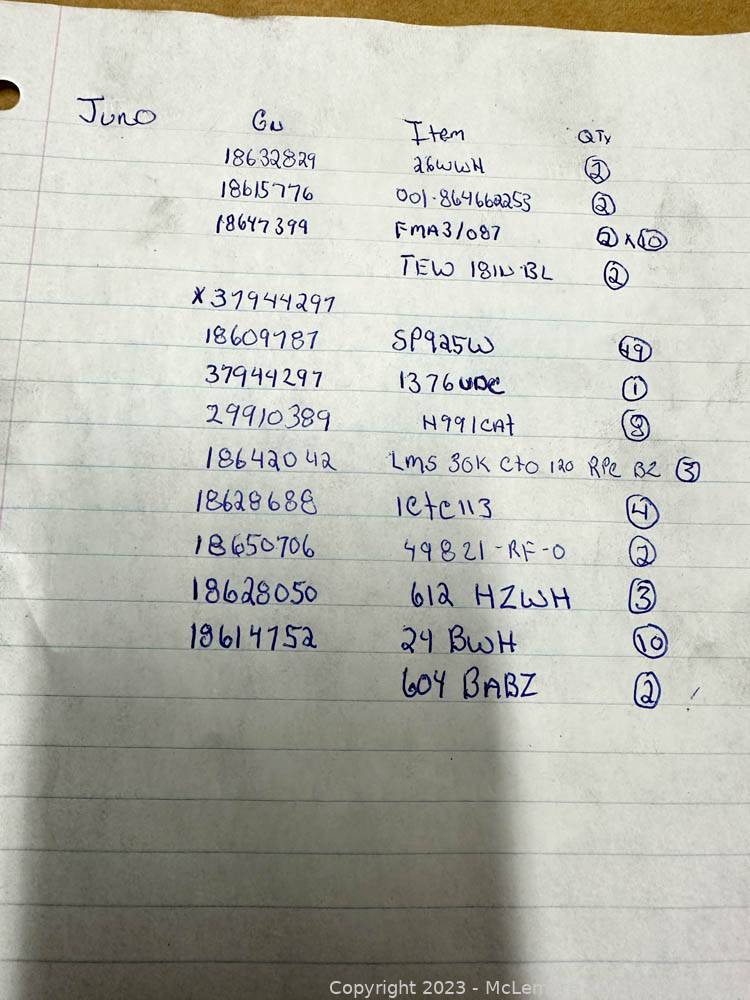 Juno GN Item QTY
18632829 26WWH 2
18615776 001-864662253 2
18647399 FMA3/087 2 x 10
TEW 18IN-BL 2
x 37944297
18609787 SP925W 49
37944297 1376 1
29910389 H991CAt 8
18642042 LMS 30K Cto 120 RPC BZ 3
18628688 1Ctc113 4
18650706 49821-RF-0 2
18628050 612 HZWH 3
18614752 24 BWH 10
604 BABZ 2
Copyright 2023 -